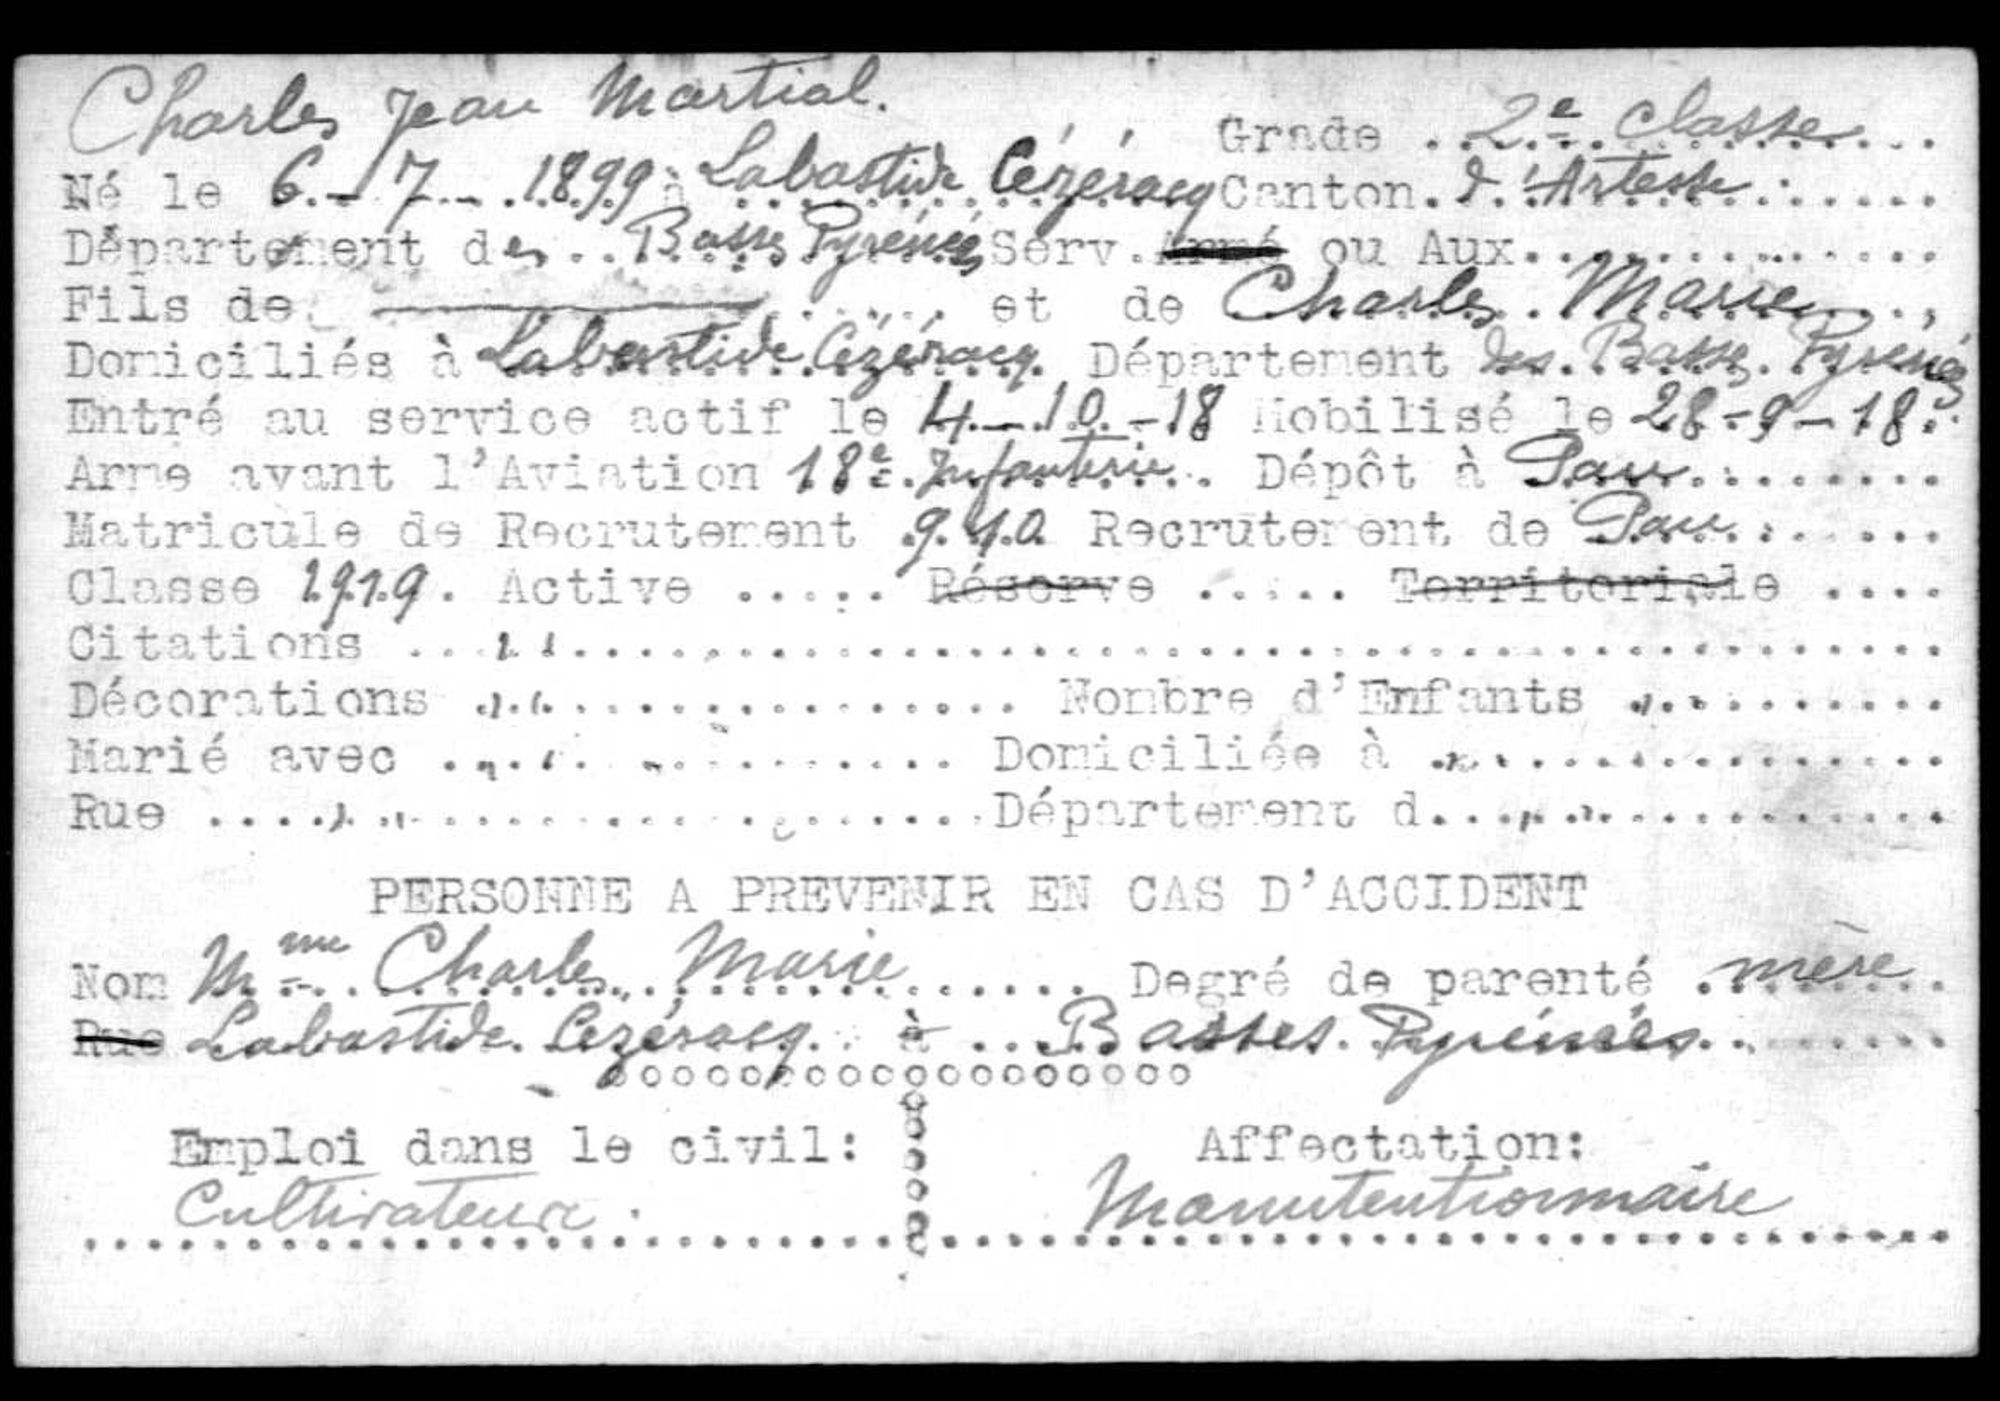 Charles Jean Martial.
Grade .. 2e classe ...
Né le 6.-7-.1899 à Labastide Cézéracq Canton. d'Artesse.....
Département des.. Basses Pyrénées Serv. Armé ou Aux..............
Fils de ———— ...... et de Charles. Marie....
Domiciliés à Labastide Cézéracq. Département des. Basses. Pyrénées
Entré au service actif le 4-10-18 Mobilisé le 28-9-18.
Arme avant l'Aviation 18e Infanterie.. Dépôt à Pau........
Matricule de Recrutement 910 Recrutement de Pau.......
Classe 1919. Active ..... Réserve ..... Territoriale ....
Citations ... " ........................................
Décorations " ................ Nombre d'Enfants " .........
Marié avec .. " ............. Domiciliée à " .............
Rue .... " ..................Département d... " ............
PERSONNE A PREVENIR EN CAS D'ACCIDENT
Nom Mme Charles. Marie ...... Degré de parenté .mère.
Rue Labastide. Cézéracq.. à ... Basses. Pyrénées........
Emploi dans le civil: Affectation:
Cultivateur. Manutentionnaire